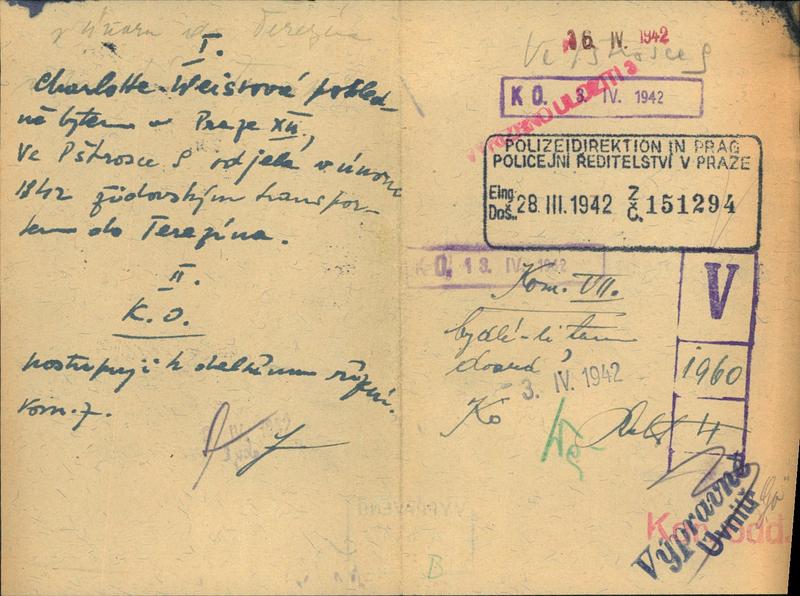 I.
Charlotte Weisová posled-
ně bytem v Praze XII.,
Ve Pštrosce 9 odjela v únoru
1942 židovským transpor-
tem do Terezína.
II.
K. O.
postupuji k dalšímu řízení.
Kom. 7.
16 IV. 1942
Ve Pštrosce 9
K O. 3. IV. 1942
POLIZEIDIREKTION IN PRAG
POLICEJNÍ ŘEDITELSTVÍ V PRAZE
Eing. Doš. 28 III. 1942 Z Č. 151294
K O. 13. IV. 1942
Kom. VII.
bydlí-li tam
dosud,
3. IV. 1942
Ko
V
1960
II
Výpravně
Uvnitř
odd.
B